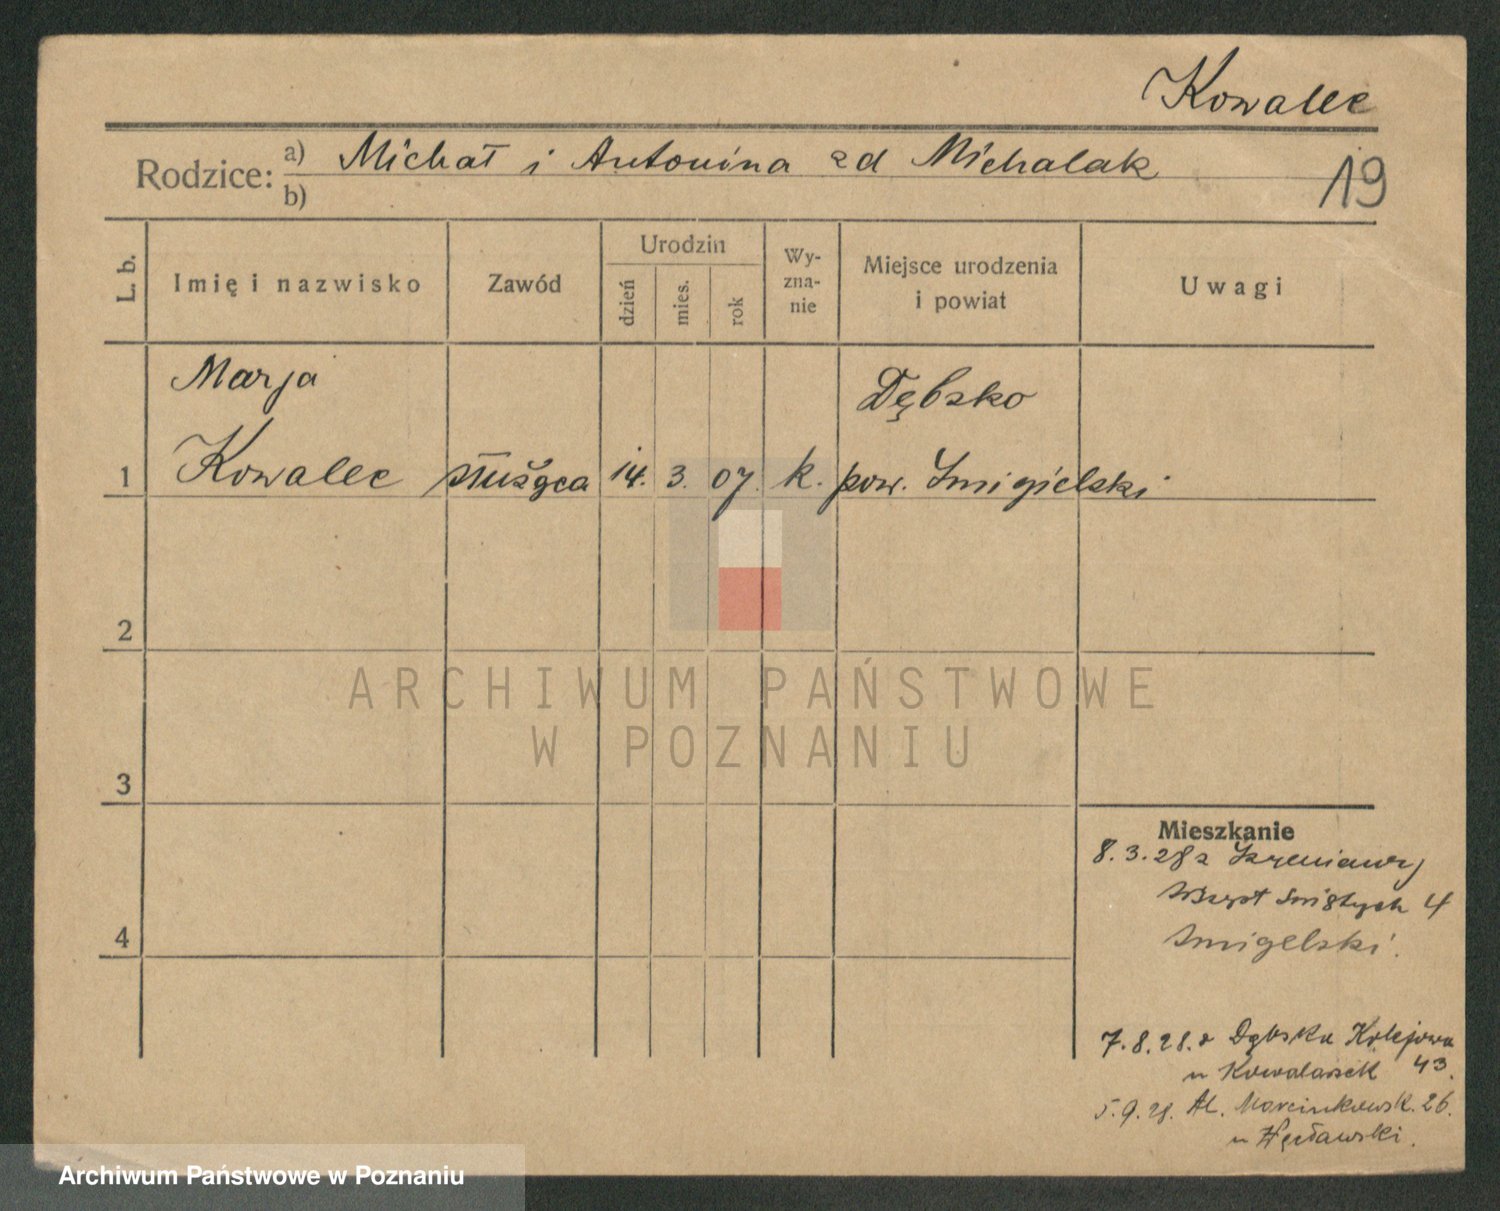 Kowalec
Rodzice: a) Michał i Antonina zd Michalak
b)
19
L. b.
Imię i nazwisko
Zawód
Urodzin
dzień
mies.
rok
Wy-
zna-
nie
Miejsce urodzenia
i powiat
Uwagi
Marja
Dębsko
1 Kowalec służąca 14. 3. 07. k. pow. Śmigielski
2
3
4
ARCHIWUM PAŃSTWOWE
W POZNANIU
Mieszkanie
8.3.28 z
Świętych 4
Śmigelski.
7.8.28. z Dębska Kolejowa
u Kowalarzek 43.
5.9.28. Al. Marcinkowsk. 26.
u Węcławski.
Archiwum Państwowe w Poznaniu